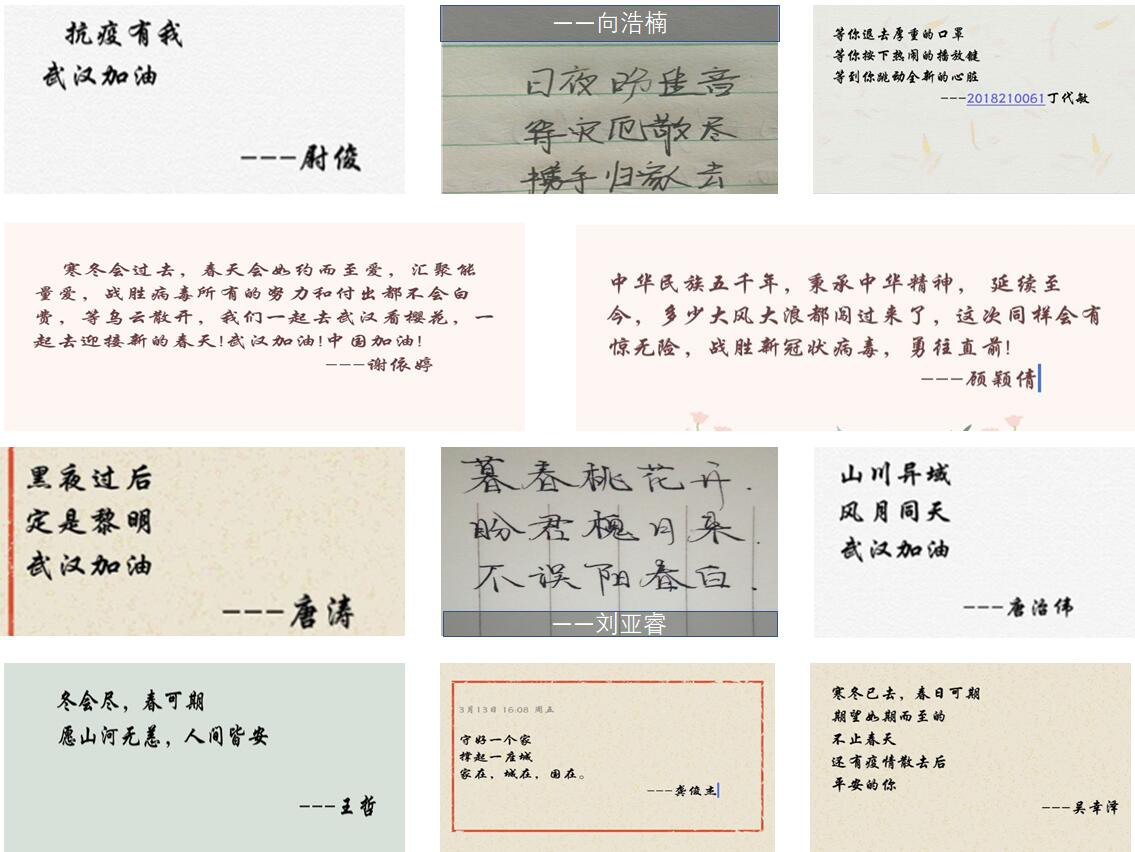 抗疫有我
武汉加油
---尉俊
——向浩楠
日夜盼佳音
等灾厄散尽
携手归家去
等你退去厚重的口罩
等你按下热闹的播放键
等到你跳动全新的心脏
---2018210061丁代敏
寒冬会过去，春天会如约而至爱，汇聚能
量爱，战胜病毒所有的努力和付出都不会白
费，等乌云散开，我们一起去武汉看樱花，一
起去迎接新的春天!武汉加油!中国加油!
---谢依婷
中华民族五千年，秉承中华精神， 延续至
今，多少大风大浪都闯过来了，这次同样会有
惊无险，战胜新冠状病毒，勇往直前!
---顾颖倩
黑夜过后
定是黎明
武汉加油
---唐涛
暮春桃花开.
盼君槐月来.
不误阳春白.
——刘亚睿
山川异域
风月同天
武汉加油
---唐治伟
冬会尽，春可期
愿山河无恙，人间皆安
---王哲
3月13日 16:08 周五
守好一个家
撑起一座城
家在，城在，国在。
---龚俊杰
寒冬已去，春日可期
期望如期而至的
不止春天
还有疫情散去后
平安的你
---吴幸泽